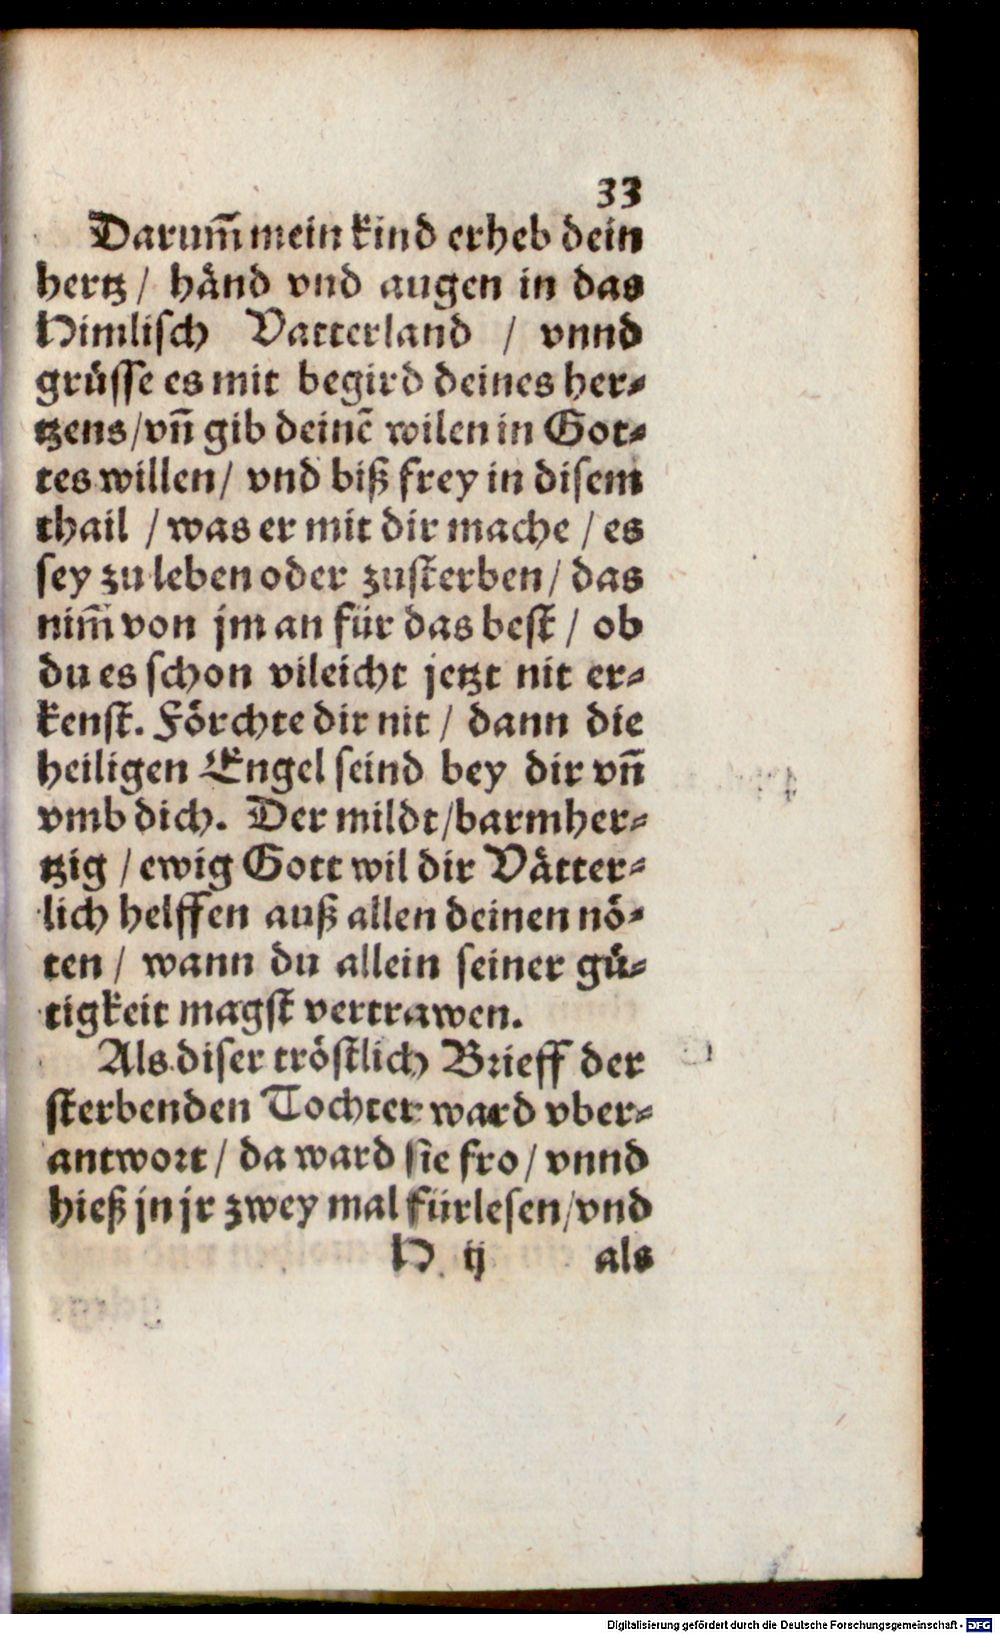 33
Darum̃ mein kind erheb dein
hertz / hånd vnd augen in das
Himlisch Vatterland / vnnd
grüsse es mit begird deines her⸗
tzens/vñ gib deinẽ wilen in Got⸗
tes willen/ vnd biß frey in disem
thail / was er mit dir mache / es
sey zu leben oder zusterben/ das
nim̃ von jm an für das best / ob
du es schon vileicht jetzt nit er⸗
kenst. Förchte dir nit / dann die
heiligen Engel seind bey dir vñ
vmb dich. Der mildt/barmher⸗
tzig / ewig Gott wil dir Våtter⸗
lich helffen auß allen deinen nö⸗
ten / wann du allein seiner gü⸗
tigkeit magst vertrawen.
Als diser tröstlich Brieff der
sterbenden Tochter ward vber⸗
antwort / da ward sie fro / vnnd
hieß jn jr zwey mal fürlesen/vnd
H ij als
Digitalisierung gefördert durch die Deutsche Forschungsgemeinschaft - DFG